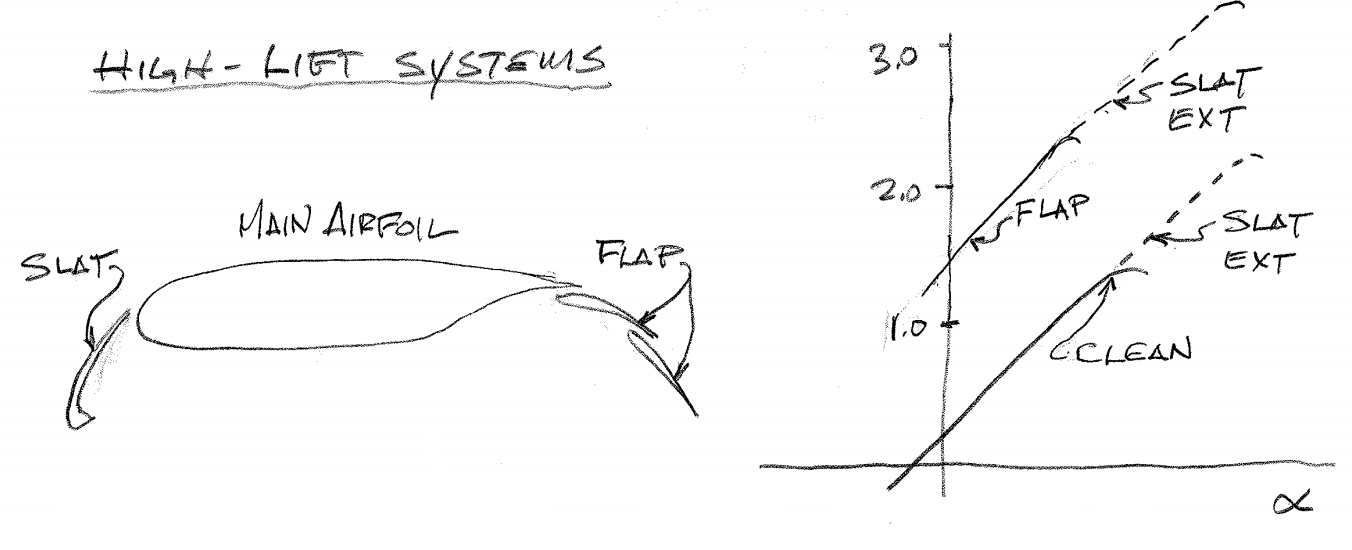 HIGH-LIFT SYSTEMS
MAIN AIRFOIL
SLAT
FLAP
3.0
2.0
1.0
SLAT
EXT
FLAP
SLAT
EXT
CLEAN
α